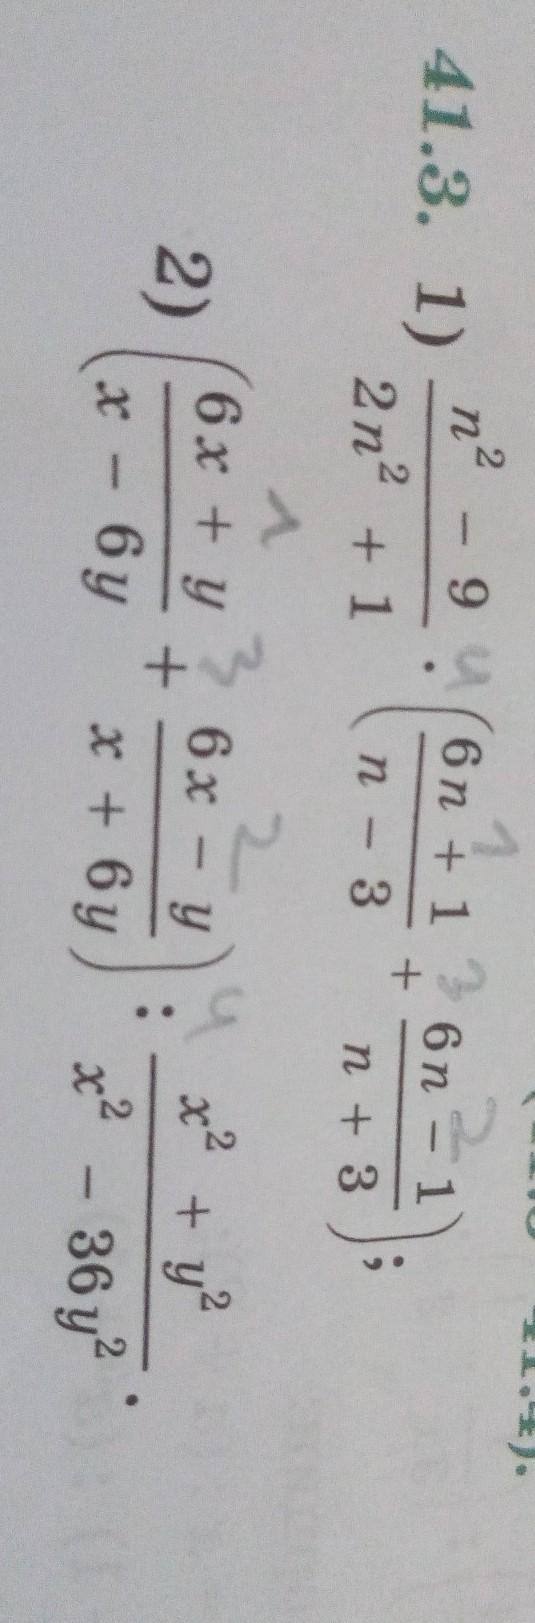 41.4).
41.3. 1) \frac{n^2 - 9}{2n^2 + 1} · (\frac{6n + 1}{n - 3} + \frac{6n - 1}{n + 3});
4 1 3 2
2) (\frac{6x + y}{x - 6y} + \frac{6x - y}{x + 6y}) : \frac{x^2 + y^2}{x^2 - 36y^2}.
1 3 2 4